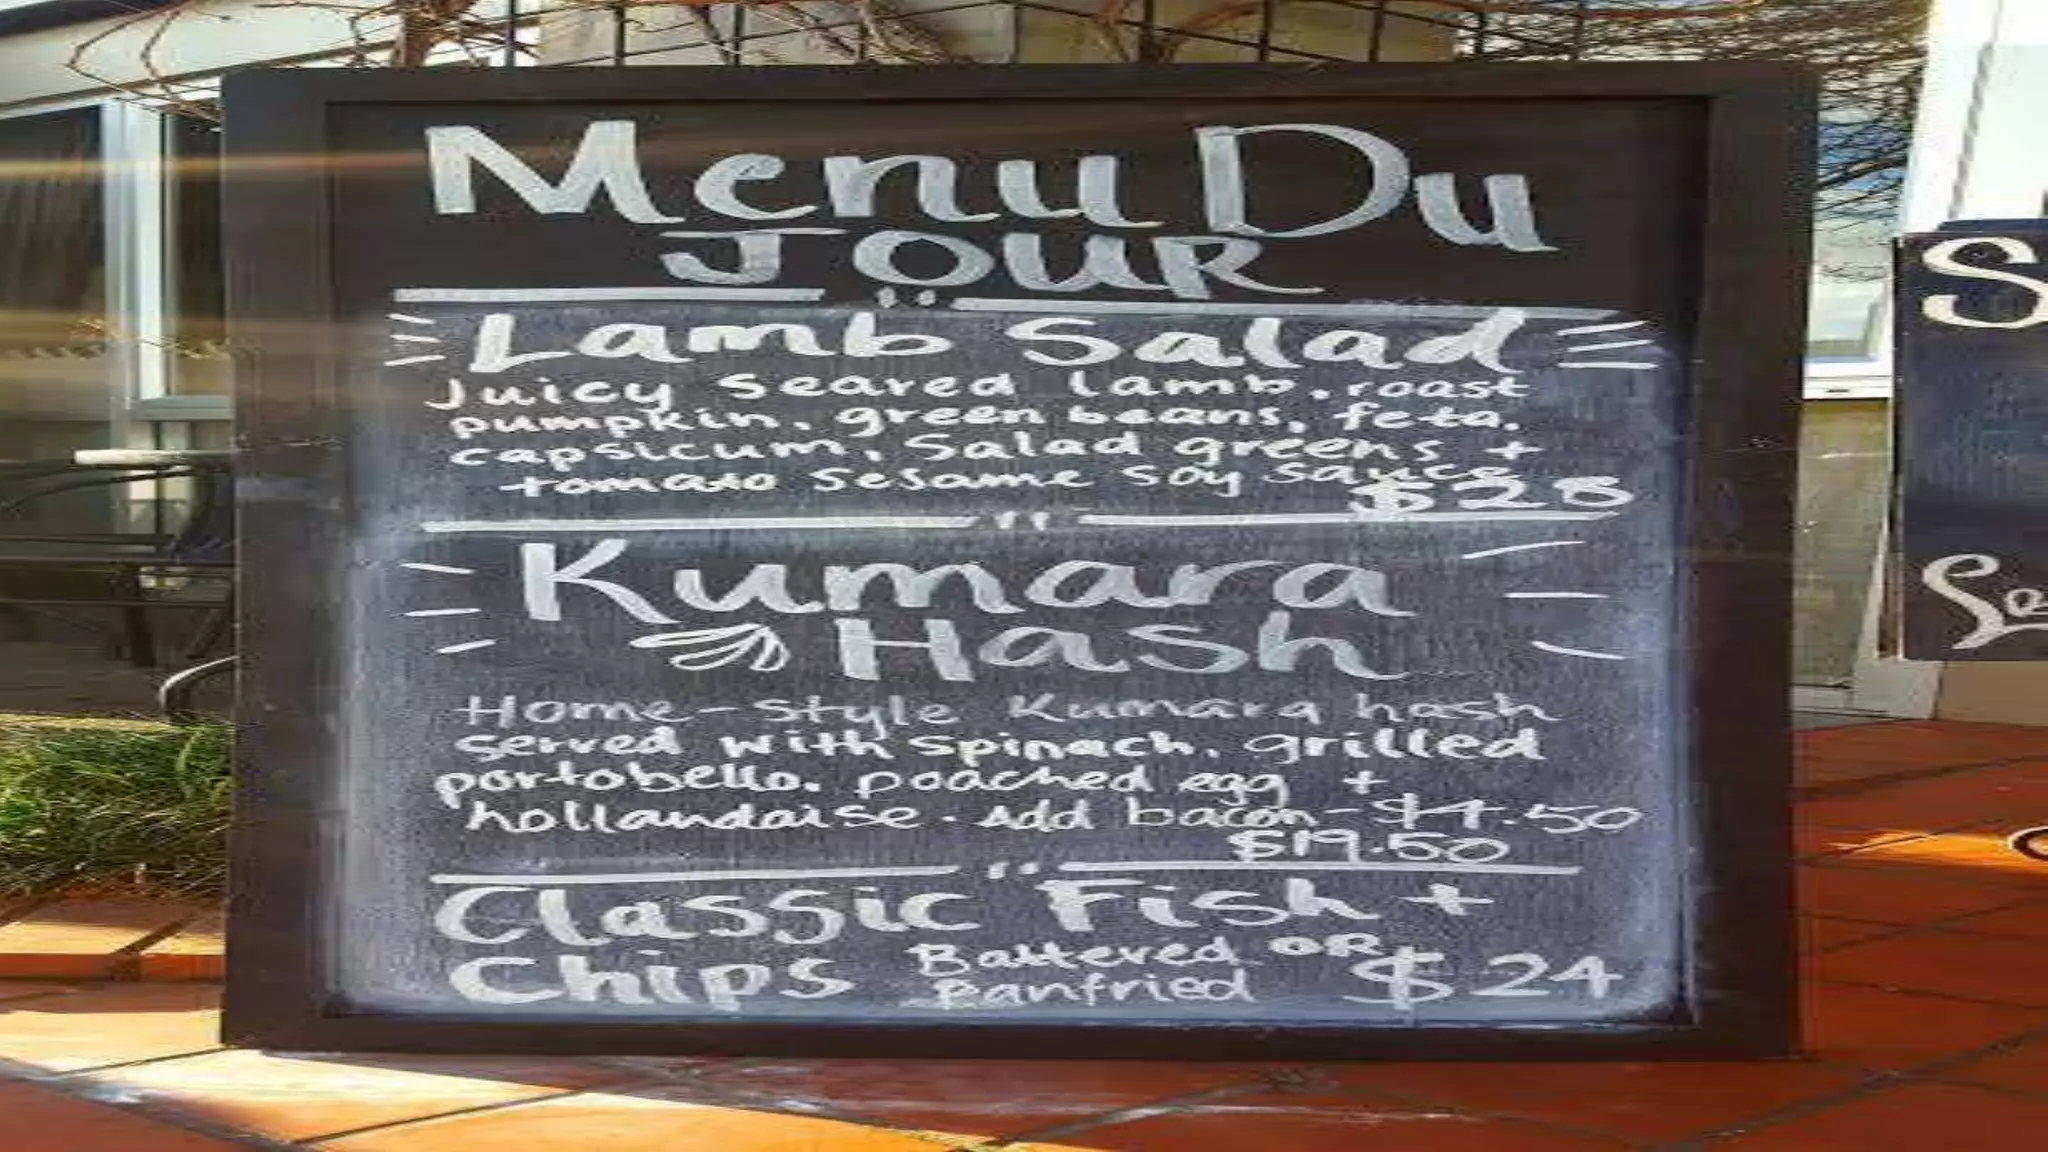 Menu Du
JOUR
Lamb Salad
Juicy Seared lamb, roast
pumpkin, green beans, feta,
capsicum, Salad greens +
tomato sesame soy sauce
$25
Kumara
Hash
Home-style Kumara hash
served with spinach, grilled
portobello, poached egg +
hollandaise. Add bacon-$4.50
$19.50
Classic Fish +
Chips Battered OR
Panfried $24
S